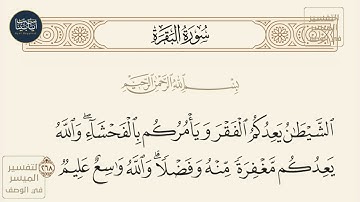 سُورَةُ البَقَرَةِ
التفسير
الميسر
في الوصف
بِسْمِ اللَّهِ الرَّحْمَنِ الرَّحِيمِ
الشَّيْطَانُ يَعِدُكُمُ الْفَقْرَ وَيَأْمُرُكُم بِالْفَحْشَاءِ ۖ وَاللَّهُ
يَعِدُكُم مَّغْفِرَةً مِّنْهُ وَفَضْلًا ۗ وَاللَّهُ وَاسِعٌ عَلِيمٌ ٢٦٨
التفسير
الميسر
في الوصف